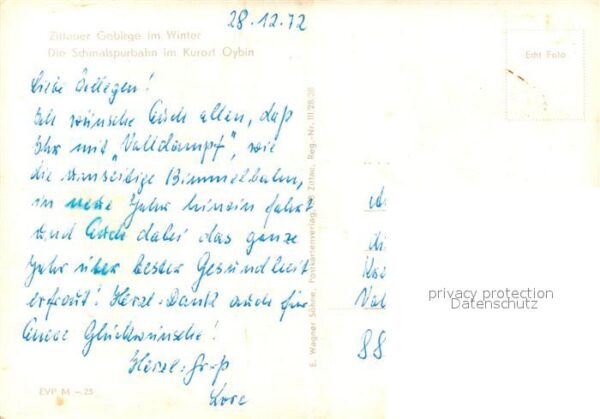 28.12.72
Zittauer Gebirge im Winter
Die Schmalspurbahn im Kurort Oybin
Liebe Kollegen!
Ich wünsche Euch allen, daß
Ihr mit „Volldampf", wie
die umseitige Bimmelbahn,
in neue Jahr hinein fahrt
und Euch dabei das ganze
Jahr über bester Gesundheit
erfreut! Herzl. Dank auch für
Eure Glückwünsche!
Herzl. Gr-ß
Lore
EVP M -.25
E. Wagner Söhne, Postkartenverlag, Zittau, Reg.-Nr. III/28/38
Echt Foto
privacy protection
Datenschutz
88